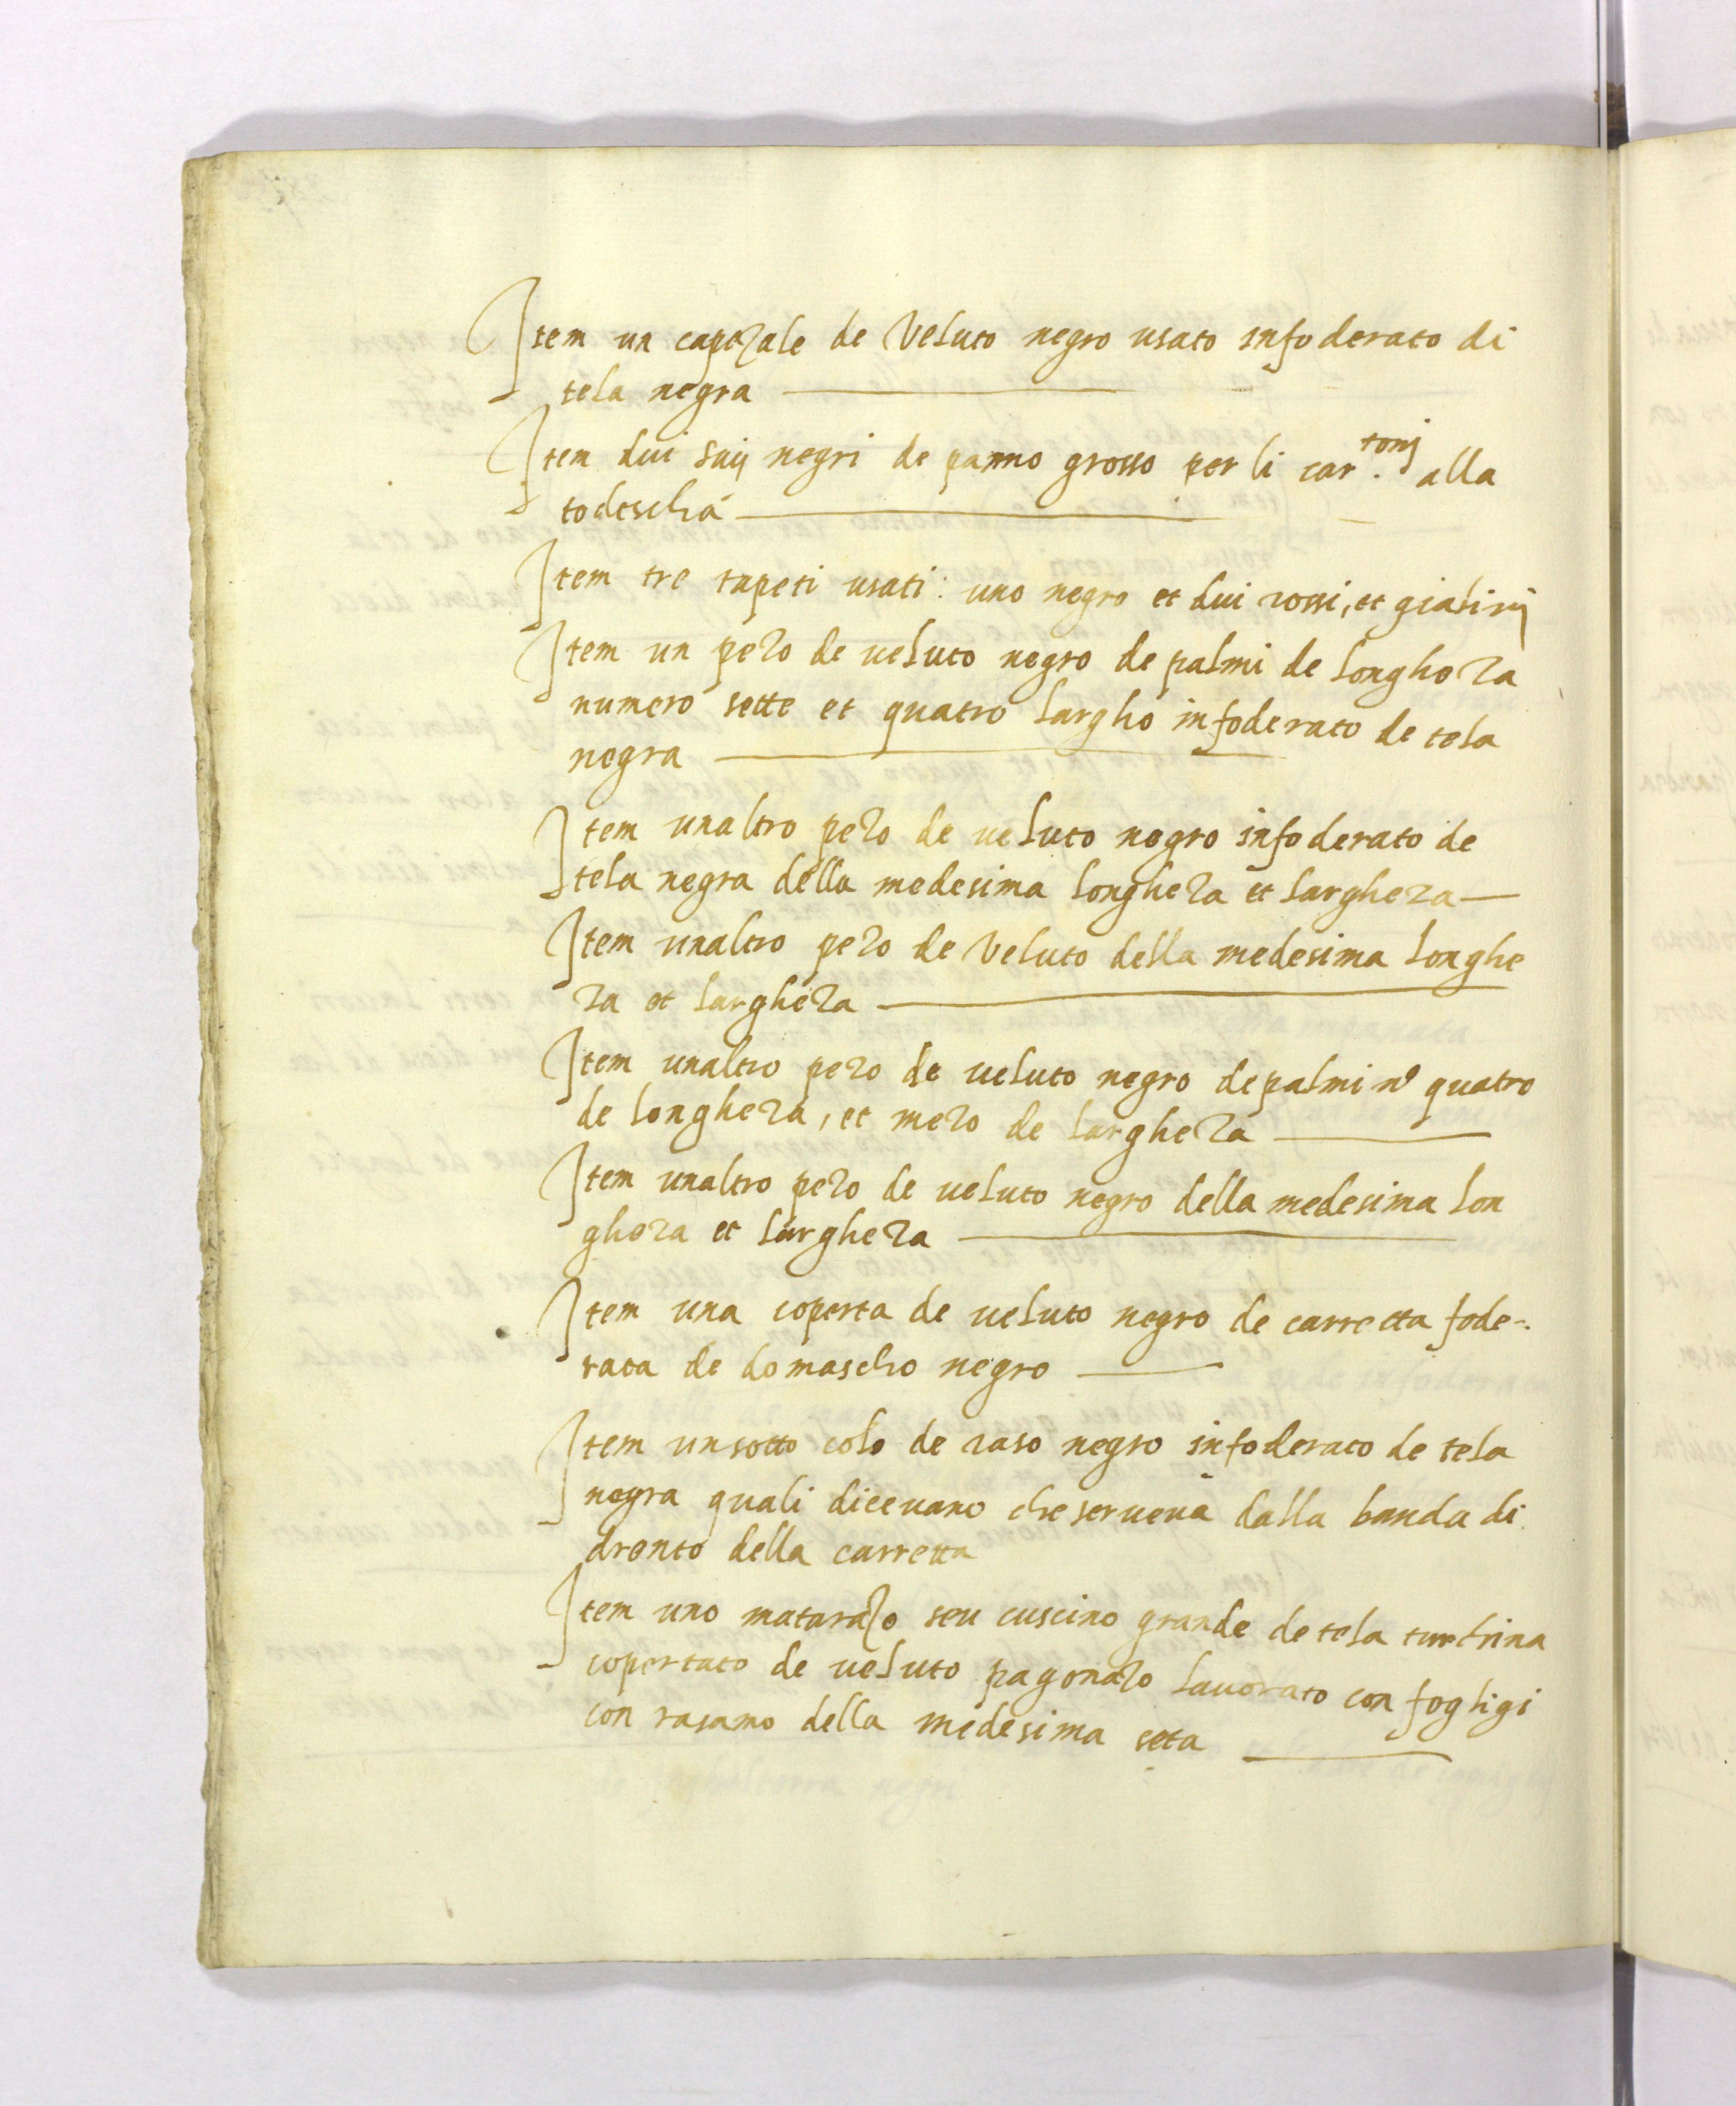 Item un capezale de Veluto negro usato infoderato di
tela negra
Item dui saij negri de panno grosso per li car.tonj alla
todescha
Item tre tapeti usati: uno negro et dui rossi, et gialinj
Item un pezo de veluto negro de palmi de longheza
numero sette et quatro largho infoderato de tela
negra
Item unaltro pezo de veluto negro infoderato de
tela negra della medesima longheza et largheza
Item unaltro pezo de Veluto della medesima longhe
za et largheza
Item unaltro pezo de veluto negro de palmi no quatro
de longheza, et mezo de largheza
Item unaltro pezo de veluto negro della medesima lon
gheza et largheza
Item una coperta de veluto negro de carretta fode-
rata de domascho negro
Item un sotto colo de raso negro infoderato de tela
negra quali dicevano che serveva dalla banda di
drento della carretta
Item uno matarazo seu cuscino grande de tela turchina
copertato de veluto pagonazo lavorato con fogligi
con rasamo della medesima seta